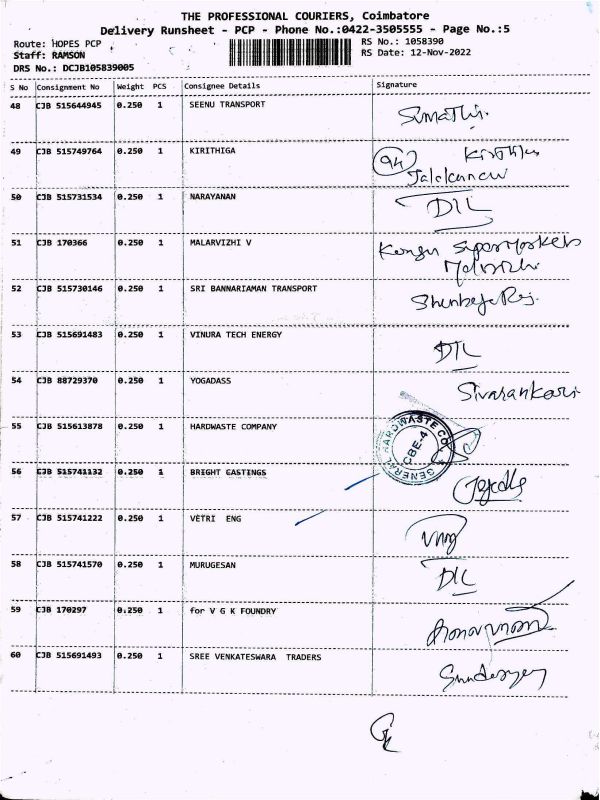 THE PROFESSIONAL COURIERS, Coimbatore
Delivery Runsheet - PCP - Phone No.:0422-3505555 - Page No.:5
Route: HOPES PCP
RS No.: 1058390
Staff: RAMSON
RS Date: 12-Nov-2022
DRS No.: DCJB105839005
S No Consignment No Weight PCS Consignee Details Signature
48 CJB 515644945 0.250 1 SEENU TRANSPORT Sumathi.
49 CJB 515749764 0.250 1 KIRITHIGA
50 CJB 515731534 0.250 1 NARAYANAN DIL
51 CJB 170366 0.250 1 MALARVIZHI V
52 CJB 515730146 0.250 1 SRI BANNARIAMAN TRANSPORT
53 CJB 515691483 0.250 1 VINURA TECH ENERGY DIL
54 CJB 88729370 0.250 1 YOGADASS Sivarankari
55 CJB 515613878 0.250 1 HARDWASTE COMPANY GENERAL HARDWASTE CO. CBE-4
56 CJB 515741132 0.250 1 BRIGHT CASTINGS
57 CJB 515741222 0.250 1 VETRI ENG
58 CJB 515741570 0.250 1 MURUGESAN DIL
59 CJB 170297 0.250 1 for V G K FOUNDRY
60 CJB 515691493 0.250 1 SREE VENKATESWARA TRADERS